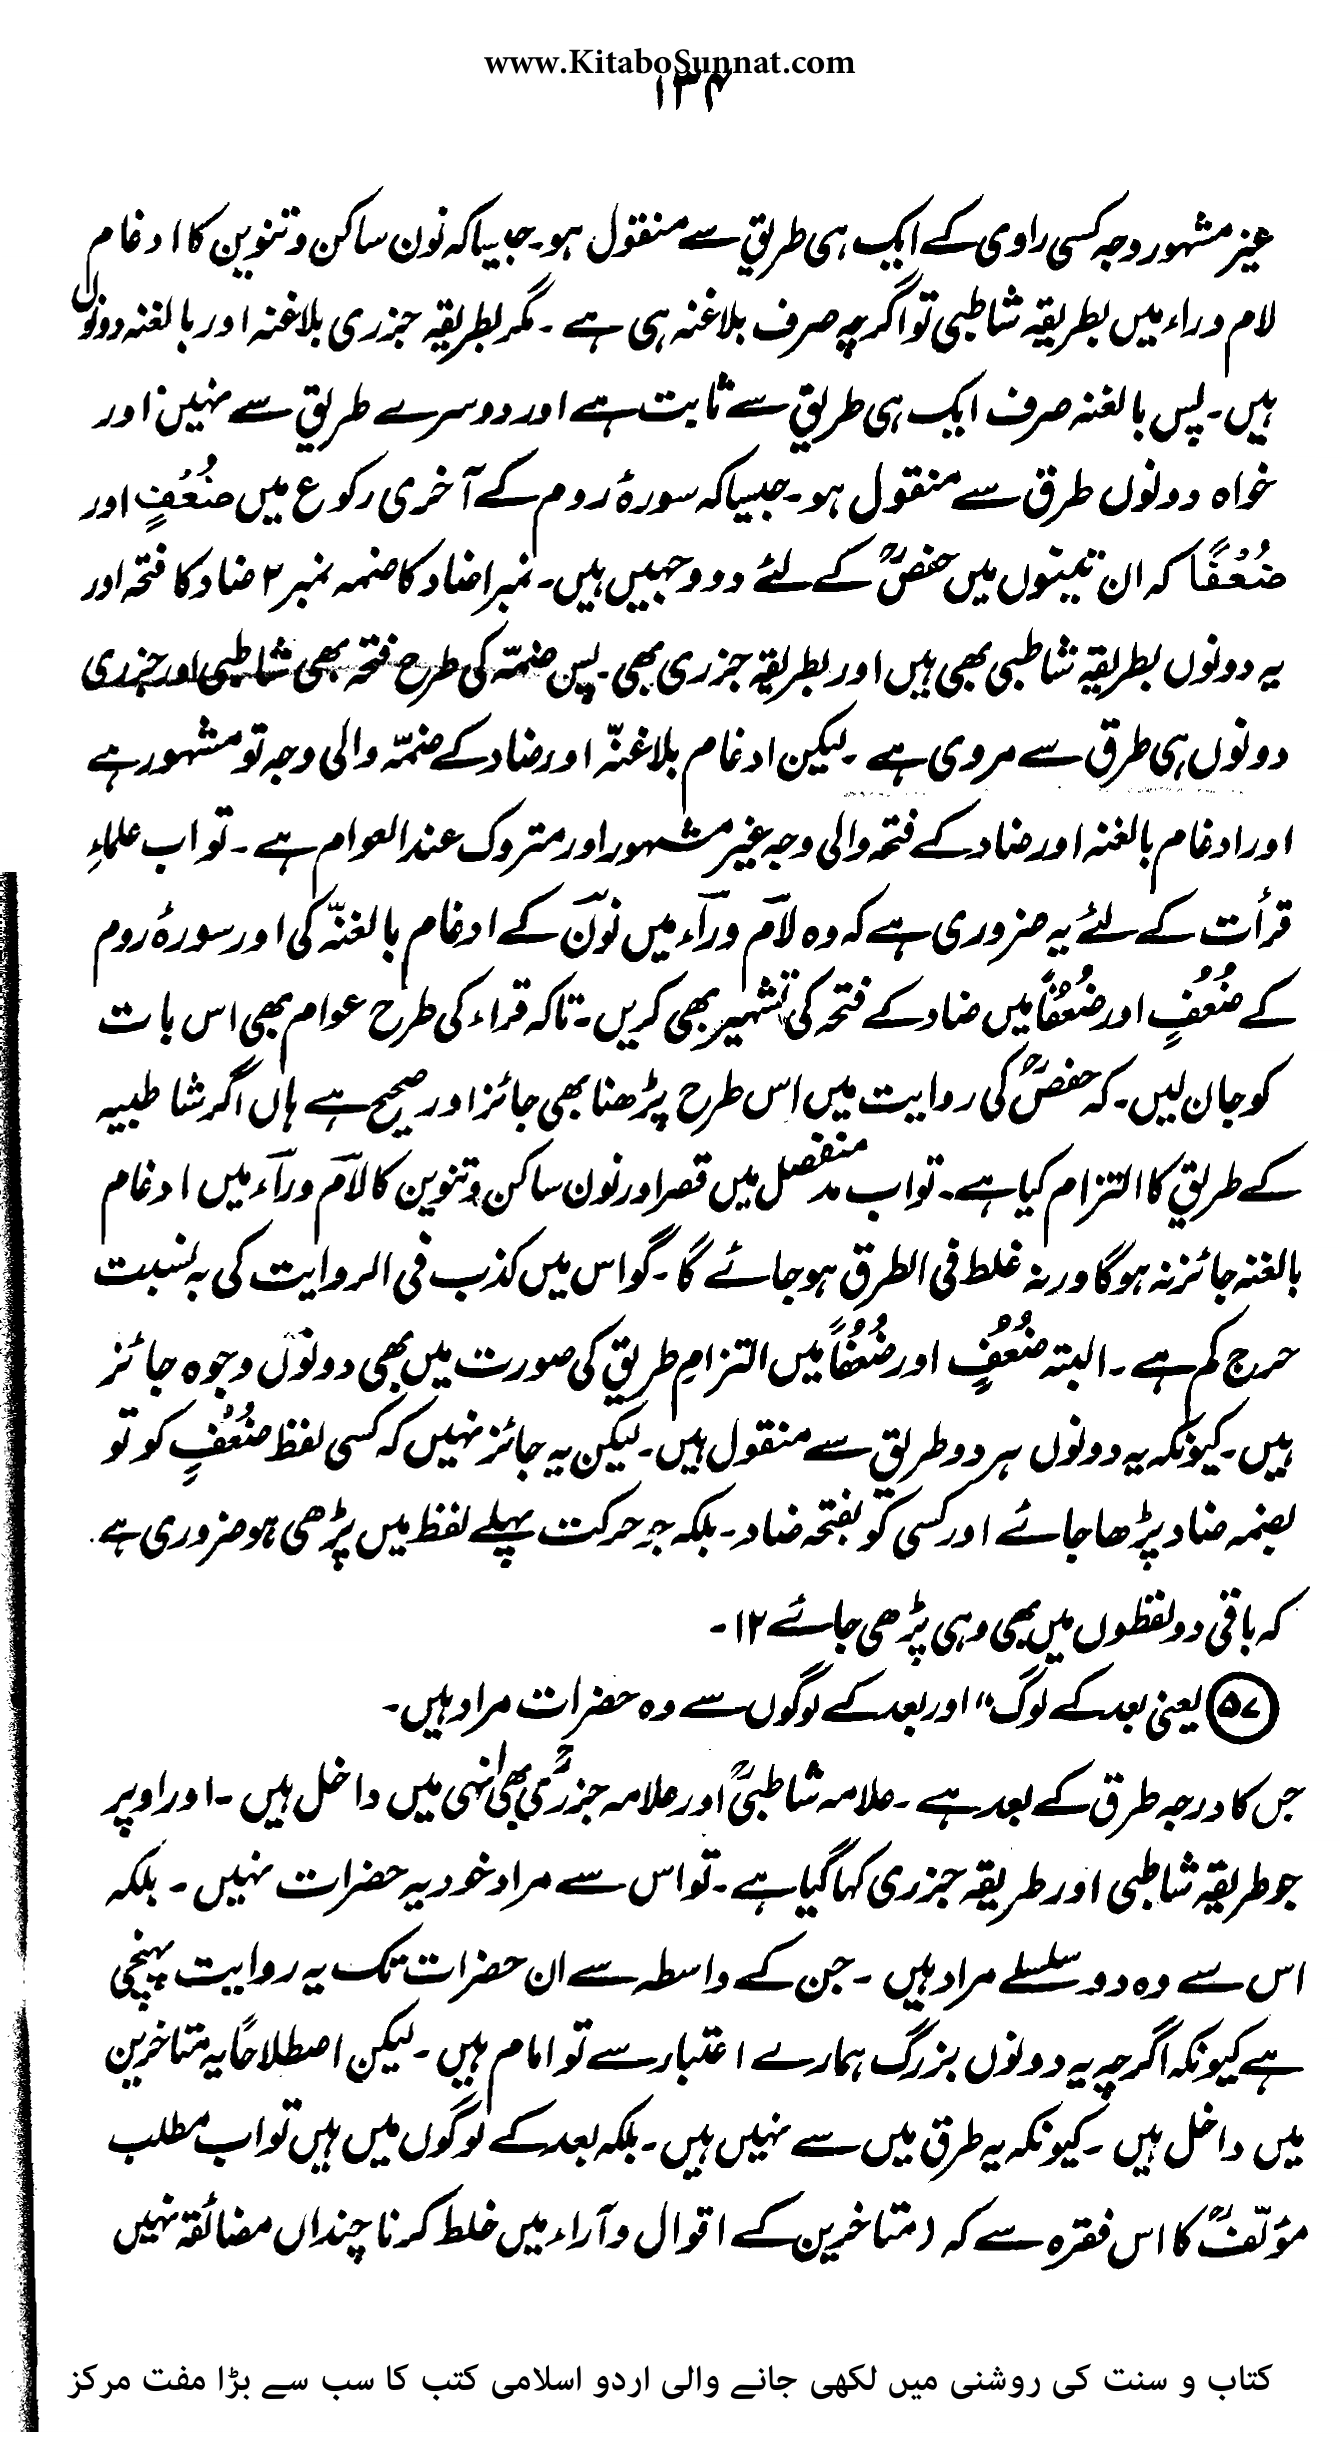 www.KitaboSunnat.com
۱۳۴
غیر مشہور وجہ کسی راوی کے ایک ہی طریق سے منقول ہو۔ جیسا کہ نون ساکن و تنوین کا ادغام
لام و راء میں بطریقہ شاطبی تو اگرچہ صرف بلاغنہ ہی ہے ۔ مگر بطریقہ جزری بلاغنہ اور بالغنہ دونوں
ہیں۔ پس بالغنہ صرف ایک ہی طریق سے ثابت ہے اور دوسرے طریق سے نہیں اور
خواہ دونوں طرق سے منقول ہو۔ جیسا کہ سورۂ روم کے آخری رکوع میں ضُعْفٍ اور
ضُعْفًا کہ ان تینوں میں حفصؒ کے لئے دو وجہیں ہیں۔ نمبر ۱ ضاد کا ضمہ نمبر ۲ ضاد کا فتحہ اور
یہ دونوں بطریقہ شاطبی بھی ہیں اور بطریقہ جزری بھی۔ پس ضمّہ کی طرح فتحہ بھی شاطبی اور جزری
دونوں ہی طرق سے مروی ہے ۔ لیکن ادغام بلاغنّہ اور ضاد کے ضمّہ والی وجہ تو مشہور ہے
اور ادغام بالغنہ اور ضاد کے فتحہ والی وجہ غیر مشہور اور متروک عند العوام ہے ۔ تو اب علماءِ
قرأت کے لئے یہ ضروری ہے کہ وہ لآم و رآء میں نوؔن کے ادغام بالغنّہ کی اور سورۂ روم
کے ضُعْفٍ اور ضُعْفًا میں ضاد کے فتحہ کی تشہیر بھی کریں۔ تاکہ قراء کی طرح عوام بھی اس بات
کو جان لیں۔ کہ حفصؒ کی روایت میں اس طرح پڑھنا بھی جائز اور صحیح ہے ہاں اگر شاطبیہ
کے طریق کا التزام کیا ہے۔ تو اب مد منفصل میں قصر اور نون ساکن و تنوین کا لآم و رآء میں ادغام
بالغنہ جائز نہ ہوگا ورنہ غلط فی الطرق ہو جائے گا۔ گو اس میں کذب فی الروایت کی بہ نسبت
حرج کم ہے ۔ البتہ ضُعْفٍ اور ضُعْفًا میں التزامِ طریق کی صورت میں بھی دونوں وجوہ جائز
ہیں۔ کیونکہ یہ دونوں ہر دو طریق سے منقول ہیں۔ لیکن یہ جائز نہیں کہ کسی لفظ ضُعْفٍ کو تو
بضمہ ضاد پڑھا جائے اور کسی کو بفتحہ ضاد۔ بلکہ جو حرکت پہلے لفظ میں پڑھی ہو ضروری ہے.
کہ باقی دو لفظوں میں بھی وہی پڑھی جائے ۱۲۔
۵۷ یعنی بعد کے لوگ" اور بعد کے لوگوں سے وہ حضرات مراد ہیں۔
جن کا درجہ طرق کے بعد ہے ۔ علامہ شاطبیؒ اور علامہ جزریؒ بھی انہی میں داخل ہیں ۔ اور اوپر
جو طریقہ شاطبی اور طریقہ جزری کہا گیا ہے ۔ تو اس سے مراد خود یہ حضرات نہیں ۔ بلکہ
اس سے وہ دو سلسلے مراد ہیں ۔ جن کے واسطہ سے ان حضرات تک یہ روایت پہنچی
ہے کیونکہ اگرچہ یہ دونوں بزرگ ہمارے اعتبار سے تو امام ہیں ۔ لیکن اصطلاحًا یہ متاخرین
میں داخل ہیں ۔ کیونکہ یہ طرق میں سے نہیں ہیں۔ بلکہ بعد کے لوگوں میں ہیں تو اب مطلب
مؤلفؒ کا اس فقرہ سے کہ (متاخرین کے اقوال و آراء میں خلط کرنا چنداں مضائقہ نہیں
کتاب و سنت کی روشنی میں لکھی جانے والی اردو اسلامی کتب کا سب سے بڑا مفت مرکز